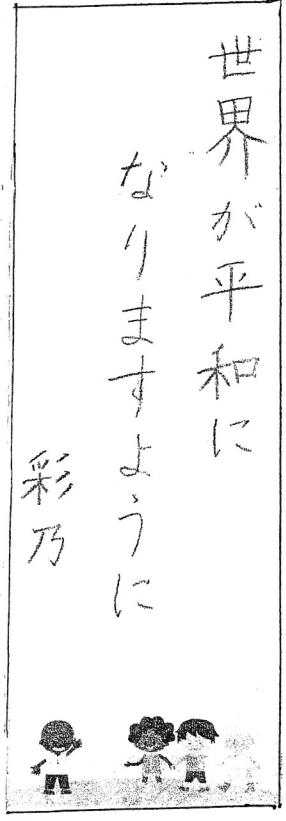 世界が平和に
なりますように
彩乃